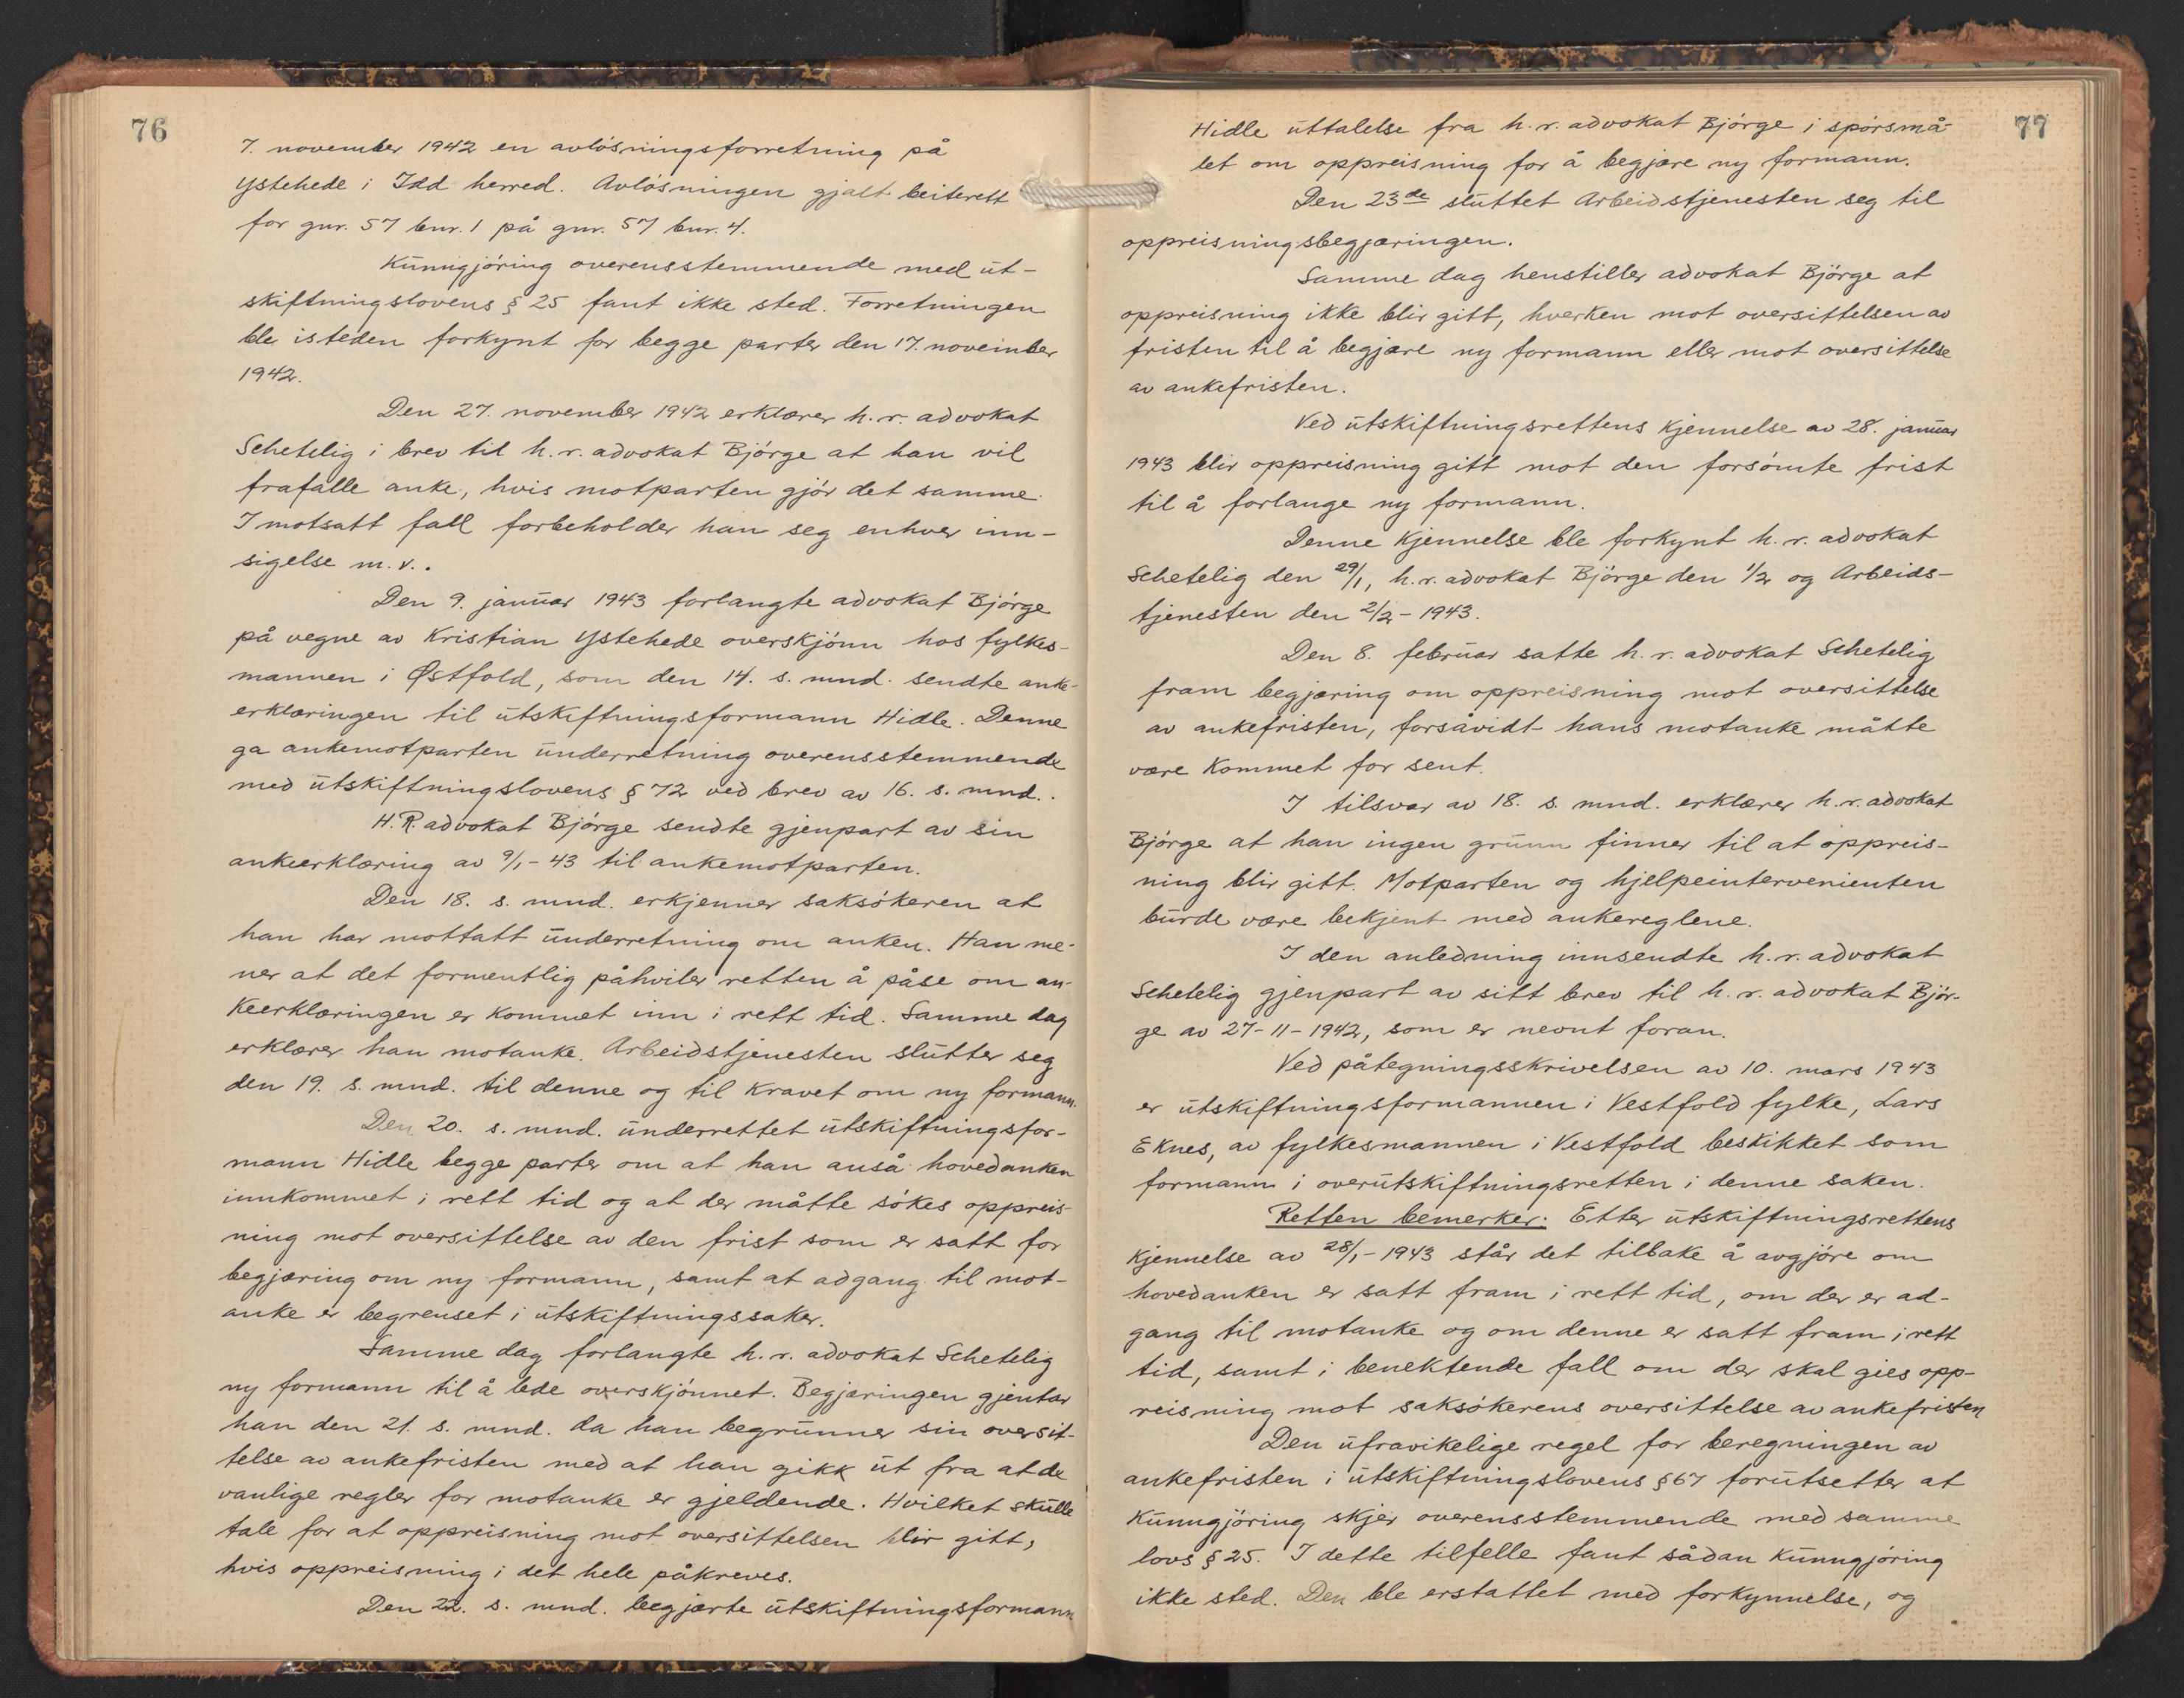 76
7. november 1942 en avlösningsforretning på
Ystehede i Idd herred. Avlösningen gjalt beiterett
for gnr. 57 bnr. 1 på gnr. 57 bnr. 4.
Kunngjöring overensstemmende med ut-
skiftningslovens § 25 fant ikke sted. Forretningen
ble isteden forkynt for begge parter den 17. november
1942.
Den 27. november 1942 erklærer h. r. advokat
Schetelig i brev til h. r. advokat Björge at han vil
frafalle anke, hvis motparten gjör det samme.
I motsatt fall forbeholder han seg enhver inn-
sigelse m. v..
Den 9. januar 1943 forlangte advokat Björge
på vegne av Kristian Ystehede overskjönn hos fylkes-
mannen i Østfold, som den 14. s. mnd. sendte anke-
erklæringen til utskiftningsformann Hidle. Denne
ga ankemotparten underretning overensstemmende
med utskiftningslovens § 72 ved brev av 16. s. mnd..
H. R. advokat Björge sendte gjenpart av sin
ankeerklæring av 9/1-43 til ankemotparten.
Den 18. s. mnd. erkjenner saksökeren at
han har mottatt underretning om anken. Han me-
ner at det formentlig påhviler retten å påse om an-
keerklæringen er kommet inn i rett tid. Samme dag
erklærer han motanke. Arbeidstjenesten slutter seg
den 19. s. mnd. til denne og til kravet om ny formann.
Den 20. s. mnd. underrettet utskiftningsfor-
mann Hidle begge parter om at han anså hovedanken
innkommet i rett tid og at der måtte sökes oppreis-
ning mot oversittelse av den frist som er satt for
begjæring om ny formann, samt at adgang til mot-
anke er begrenset i utskiftningssaker.
Samme dag forlangte h. r. advokat Schetelig
ny formann til å lede overskjönnet. Begjæringen gjentar
han den 21. s. mnd. da han begrunner sin oversit-
telse av ankefristen med at han gikk ut fra at de
vanlige regler for motanke er gjeldende. Hvilket skulle
tale for at oppreisning mot oversittelsen blir gitt,
hvis oppreisning i det hele påkreves.
Den 22. s. mnd. begjærte utskiftningsformann
77
Hidle uttalelse fra h. r. advokat Björge i spörsmå-
let om oppreisning for å begjære ny formann.
Den 23de sluttet Arbeidstjenesten seg til
oppreisningsbegjæringen.
Samme dag henstiller advokat Björge at
oppreisning ikke blir gitt, hverken mot oversittelsen av
fristen til å begjære ny formann eller mot oversittelse
av ankefristen.
Ved utskiftningsrettens kjennelse av 28. januar
1943 blir oppreisning gitt mot den forsömte frist
til å forlange ny formann.
Denne kjennelse ble forkynt h. r. advokat
Schetelig den 29/1, h. r. advokat Björge den 1/2 og Arbeids-
tjenesten den 2/2-1943.
Den 8. februar satte h. r. advokat Schetelig
fram begjæring om oppreisning mot oversittelse
av ankefristen, forsåvidt hans motanke måtte
være kommet for sent.
I tilsvar av 18. s. mnd. erklærer h. r. advokat
Björge at han ingen grunn finner til at oppreis-
ning blir gitt. Motparten og hjelpeintervenienten
burde være bekjent med ankereglene.
I den anledning innsendte h. r. advokat
Schetelig gjenpart av sitt brev til h. r. advokat Björ-
ge av 27-11-1942, som er nevnt foran.
Ved påtegningsskrivelsen av 10. mars 1943
er utskiftningsformannen i Vestfold fylke, Lars
Eknes, av fylkesmannen i Vestfold beskikket som
formann i overutskiftningsretten i denne saken.
Retten bemerker: Etter utskiftningsrettens
kjennelse av 28/1-1943 står det tilbake å avgjöre om
hovedanken er satt fram i rett tid, om der er ad-
gang til motanke og om denne er satt fram i rett
tid, samt i benektende fall om der skal gies opp-
reisning mot saksökerens oversittelse av ankefristen
Den ufravikelige regel for beregningen av
ankefristen i utskiftningslovens § 67 forutsetter at
kunngjöring skjer overensstemmende med samme
lovs § 25. I dette tilfelle fant sådan kunngjöring
ikke sted. Den ble erstattet med forkynnelse, og